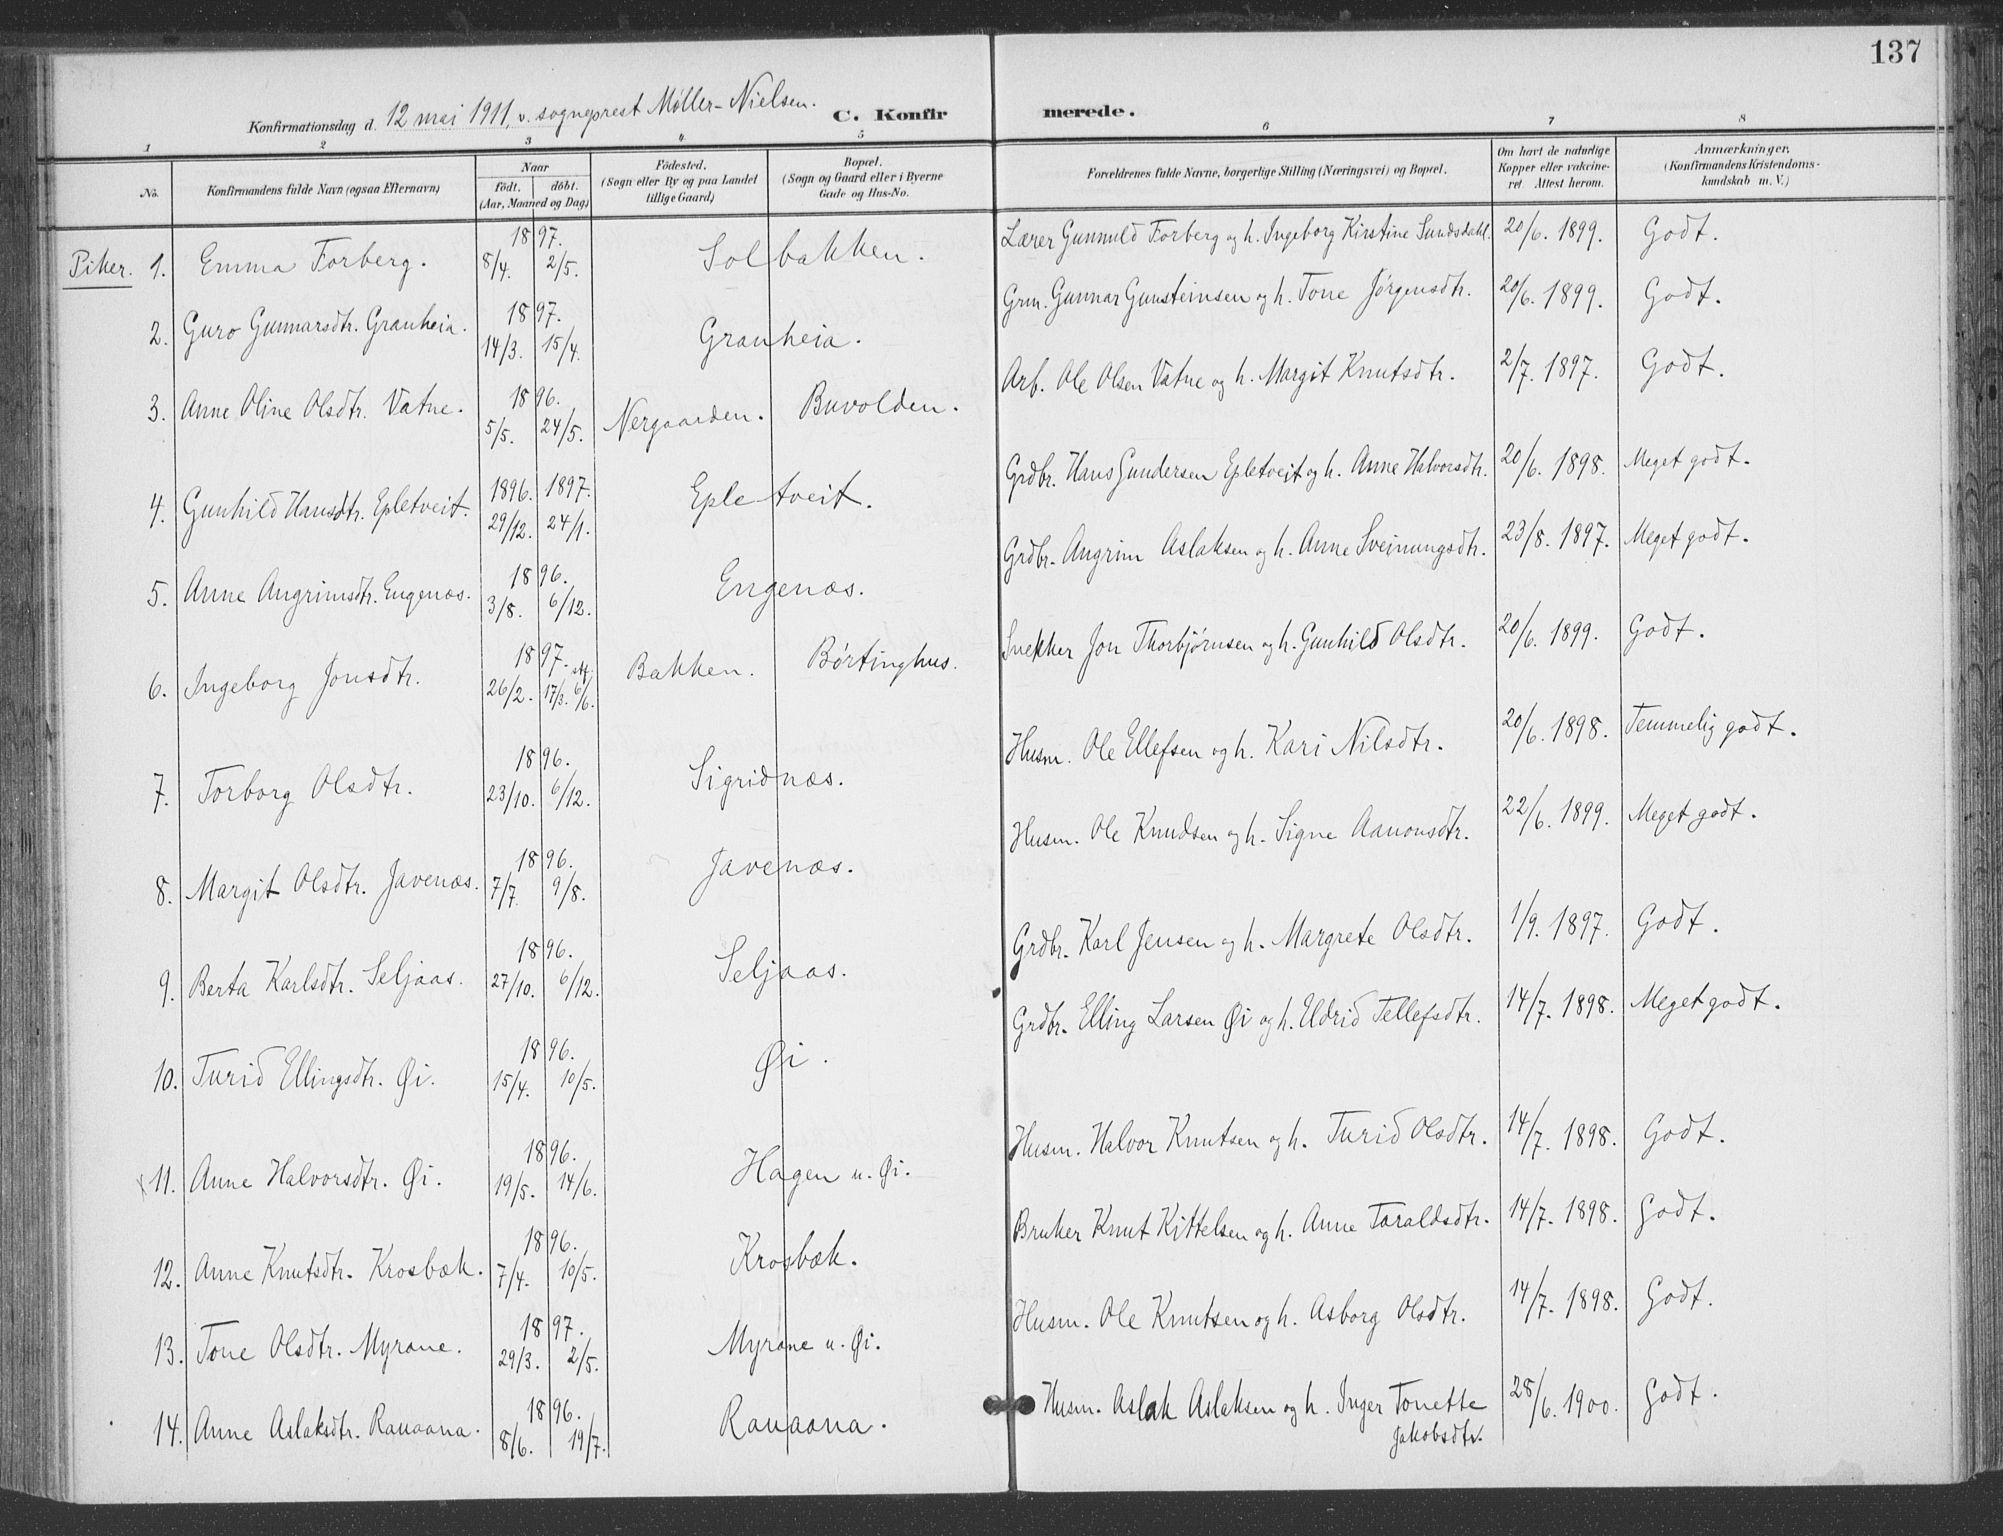 137
Konfirmationsdag d. 12 mai 1911, v. sogneprest Møller-Nielsen.
C. Konfirmerede.
1 2 3 4 5 6 7 8
No.
Konfirmandens fulde Navn (ogsaa Efternavn)
Naar
födt. döbt.
(Aar, Maaned og Dag)
Födested.
(Sogn eller By og paa Landet
tillige Gaard)
Bopæl.
(Sogn og Gaard eller i Byerne
Gade og Hus-No.
Forældrenes fulde Navne, borgerlige Stilling (Næringsvei) og Bopæl.
Om havt de naturlige
Kopper eller vakcine-
ret. Attest herom.
Anmærkninger.
(Konfirmandens Kristendoms-
kundskab m. V.)
Piker. 1. Emma Forberg. 1897. 8/4. 2/5. Solbakken. Lærer Gunnuld Forberg og h. Ingeborg Kirstine Sundsdahl. 20/6. 1899. Godt.
2. Guro Gunnarsdtr. Granheia. 1897. 14/3. 15/4. Granheia. Grm. Gunnar Gunsteinsen og h. Tone Jørgensdtr. 20/6. 1899. Godt.
3. Anne Oline Olsdtr. Vatne. 1896. 5/5. 24/5. Nergaarden. Buvolden. Arb. Ole Olsen Vatne og h. Margit Knutsdtr. 2/7. 1897. Godt.
4. Gunhild Hansdtr. Epletveit. 1896. 1897. 29/12. 24/1. Epletveit. Grdbr. Hans Gundersen Epletveit og h. Anne Halvorsdtr. 20/6. 1898. Meget godt.
5. Anne Angrimsdtr. Engenæs. 1896. 3/8. 6/12. Engenæs. Grdbr. Angrim Aslaksen og h. Anne Sveinungsdtr. 23/8. 1897. Meget godt.
6. Ingeborg Jonsdtr. 1897. 26/2. 17/3. 6/6. Bakken. Børtinghus. Snekker Jon Thorbjørnsen og h. Gunhild Olsdtr. 20/6. 1899. Godt.
7. Torborg Olsdtr. 1896. 23/10. 6/12. Sigridnæs. Husm. Ole Ellefsen og h. Kari Nilsdtr. 20/6. 1898. Temmelig godt.
8. Margit Olsdtr. Javenæs. 1896. 7/7. 9/8. Javenæs. Husm. Ole Knudsen og h. Signe Aanonsdtr. 22/6. 1899. Meget godt.
9. Berta Karlsdtr. Seljaas. 1896. 27/10. 6/12. Seljaas. Grdbr. Karl Jensen og h. Margrete Olsdtr. 1/9. 1897. Godt.
10. Turid Ellingsdtr. Øi. 1896. 15/4. 10/5. Øi. Grdbr. Elling Larsen Øi og h. Eldrid Tellefsdtr. 14/7. 1898. Meget godt.
x 11. Anne Halvorsdtr. Øi. 1896. 19/5. 14/6. Hagen u. Øi. Husm. Halvor Knutsen og h. Turid Olsdtr. 14/7. 1898. Godt.
12. Anne Knutsdtr. Krosbæk. 1896. 7/4. 10/5. Krosbæk. Bruker Knut Kittelsen og h. Anne Taraldsdtr. 14/7. 1898. Godt.
13. Tone Olsdtr. Myrane. 1897. 29/3. 2/5. Myrane u. Øi. Husm. Ole Knutsen og h. Asborg Olsdtr. 14/7. 1898. Godt.
14. Anne Aslaksdtr. Rauaana. 1896. 8/6. 19/7. Rauaana. Husm. Aslak Aslaksen og h. Inger Tonette 28/6. 1900. Godt.
Jakobsdtr.